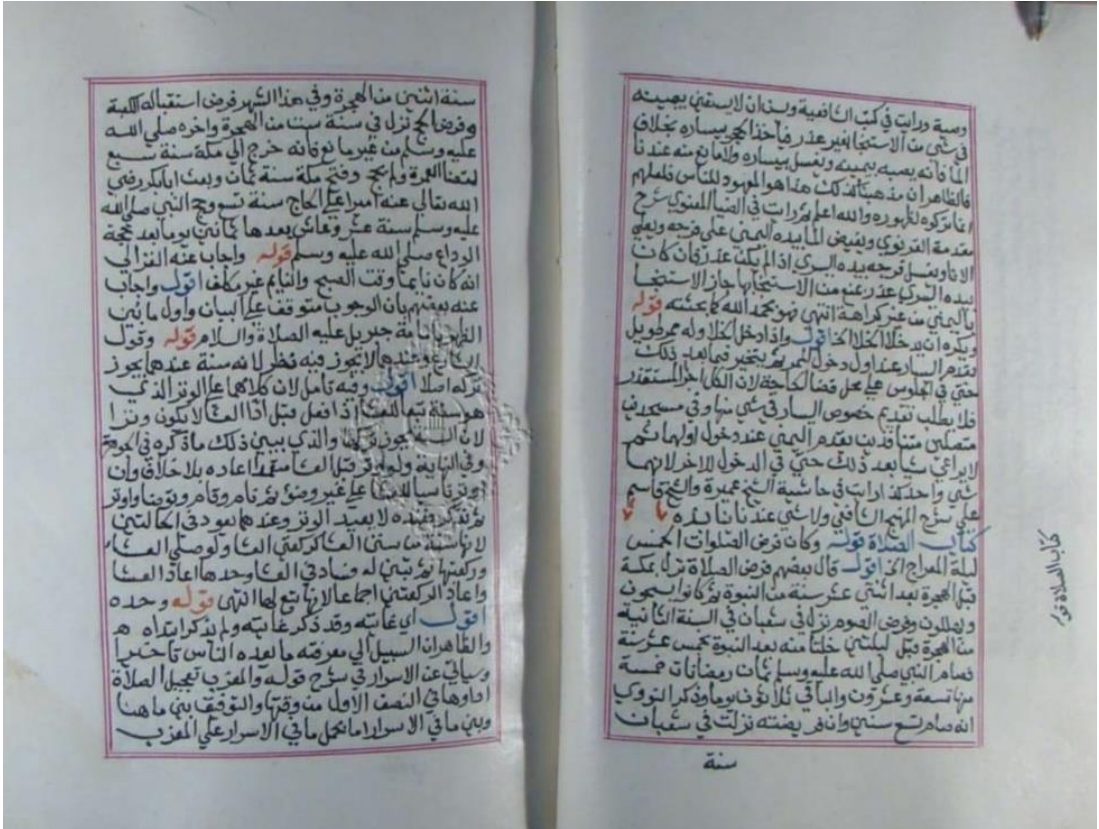 وسية ورات في كتب الشافعية وسن ان لا يستعين بيمينه
في شي من الاستنجا بغير عذر فيأخذ الحجر بيساره بخلاف
الما فانه يصبه بيمينه ويغسل بيساره ولا مانع منه عندنا
فالظاهر ان مذهبنا كذلك هذا هو المعهود للناس فلعلهم
انما تركوه لظهوره والله اعلم ثم رات في الضيا المعنوي شرح
مقدمة الغزنوي ويفيض الما بيده اليمني علي فرجه ويعلي
الانا ويغسل فرجه بيده اليسري اذا لم يكن عذر فان كان
بيده اليسري عذر يمنع من الاستنجا بها جاز الاستنجا
باليمني من غير كراهة انتهي فهو بحمد الله كما بحثته قوله
ويكره ان يدخل الخلا الخ اقول واذا دخل الخلا وله ممر طويل
يقدم اليسار عند اول دخول الممر ثم يتخير فيما بعد ذلك
حتي في الجلوس علي محل قضا الحاجة لان الكل اجزا المستقذر
فلا يطلب تقديم خصوص اليسار في شي منها وفي مسجدين
متصلين متنافذين يقدم اليمني عند دخول اولهما ثم
لا يراعي شيا بعد ذلك حتي في الدخول للاخر لانهما
شي واحد كذا رات في حاشية الشيخ عميرة والشيخ قاسم
علي شرح المنهج الشافعي ولا شي عندنا نابذه
كتاب الصلاة قوله وكان فرض الصلوات الخمس
ليلة المعراج الخ اقول قال بعضهم فرض الصلاة نزل بمكة
قبل الهجرة بعد اثنتي عشر سنة من النبوة ثم كانوا يسبحون
ويهللون وفرض الصوم نزل في شعبان في السنة الثانية
من الهجرة قبل لليلتين خلتا منه بعد النبوة بخمس عشر سنة
فصام النبي صلي الله عليه وسلم ثمان رمضانات خمسة
منها تسعة وعشرون والباقي ثلاثون يوما وذكر النووي
انه صام تسع سنين وان فريضته نزلت في شعبان
سنة
كتاب الصلاة قوله
سنة اثنين من الهجرة وفي هذا الشهر فرض استقباله الكعبة
وفرض الحج نزل في سنة ست من الهجرة واخره صلي الله
عليه وسلم من غير مانع فانه خرج الي مكة سنة سبع
لقضا العمرة ولم يحج وفتح مكة سنة ثمان وبعث ابا بكر رضي
الله تعالي عنه اميرا علي الحاج سنة تسع وحج النبي صلي الله
عليه وسلم سنة عشر وعاش بعدها ثمانين يوما بعد حجة
الوداع صلي الله عليه وسلم قوله واجاب عنه الغزالي
انه كان نايما وقت الصبح والنايم غير مكلف اقول واجاب
عنه بعضهم بان الوجوب متوقف علي البيان واول ما بين
الظهر بامامة جبريل عليه الصلاة والسلام قوله وقول
وعندهما لا يجوز فيه نظر لانه سنة عندهما يجوز
تركه اصلا اقول وفيه تامل لان كلامهما علي الوتر الذي
هو سنة تبع للعشا اذا فعل قبل اذا العشا لا يكون وترا
لان السنة يجوز تركها والذي يبين ذلك ما ذكره في الجوهرة
وفي النهاية ولو اوتر قبل العشا متعمدا اعاده بلا خلاف وان
اوتر ناسيا للعشا علي غير وضوء ثم نام وقام وتوضا واوتر
ثم تذكر فعنده لا يعيد الوتر وعندهما يعود في الحالتين
لانها سنة من سنن العشا كركعتي العشا ولو صلي العشا
وركعتها ثم تبين له فساد في العشا وحدها اعاد العشا
واعاد الركعتين اجماعا لانها تبع لها انتهي قوله وحده
اقول اي غايته وقد ذكر غايته ولم يذكر ابتداه
والظاهر ان السبيل الي معرفته ما يعده الناس تاخيرا
وسياتي عن الاسرار في شرح قوله والمغرب تعجيل الصلاة
اداوها في النصف الاول من وقتها والتوفيق بين ما هنا
وبين ما في الاسرار اما بحمل ما في الاسرار علي المغرب